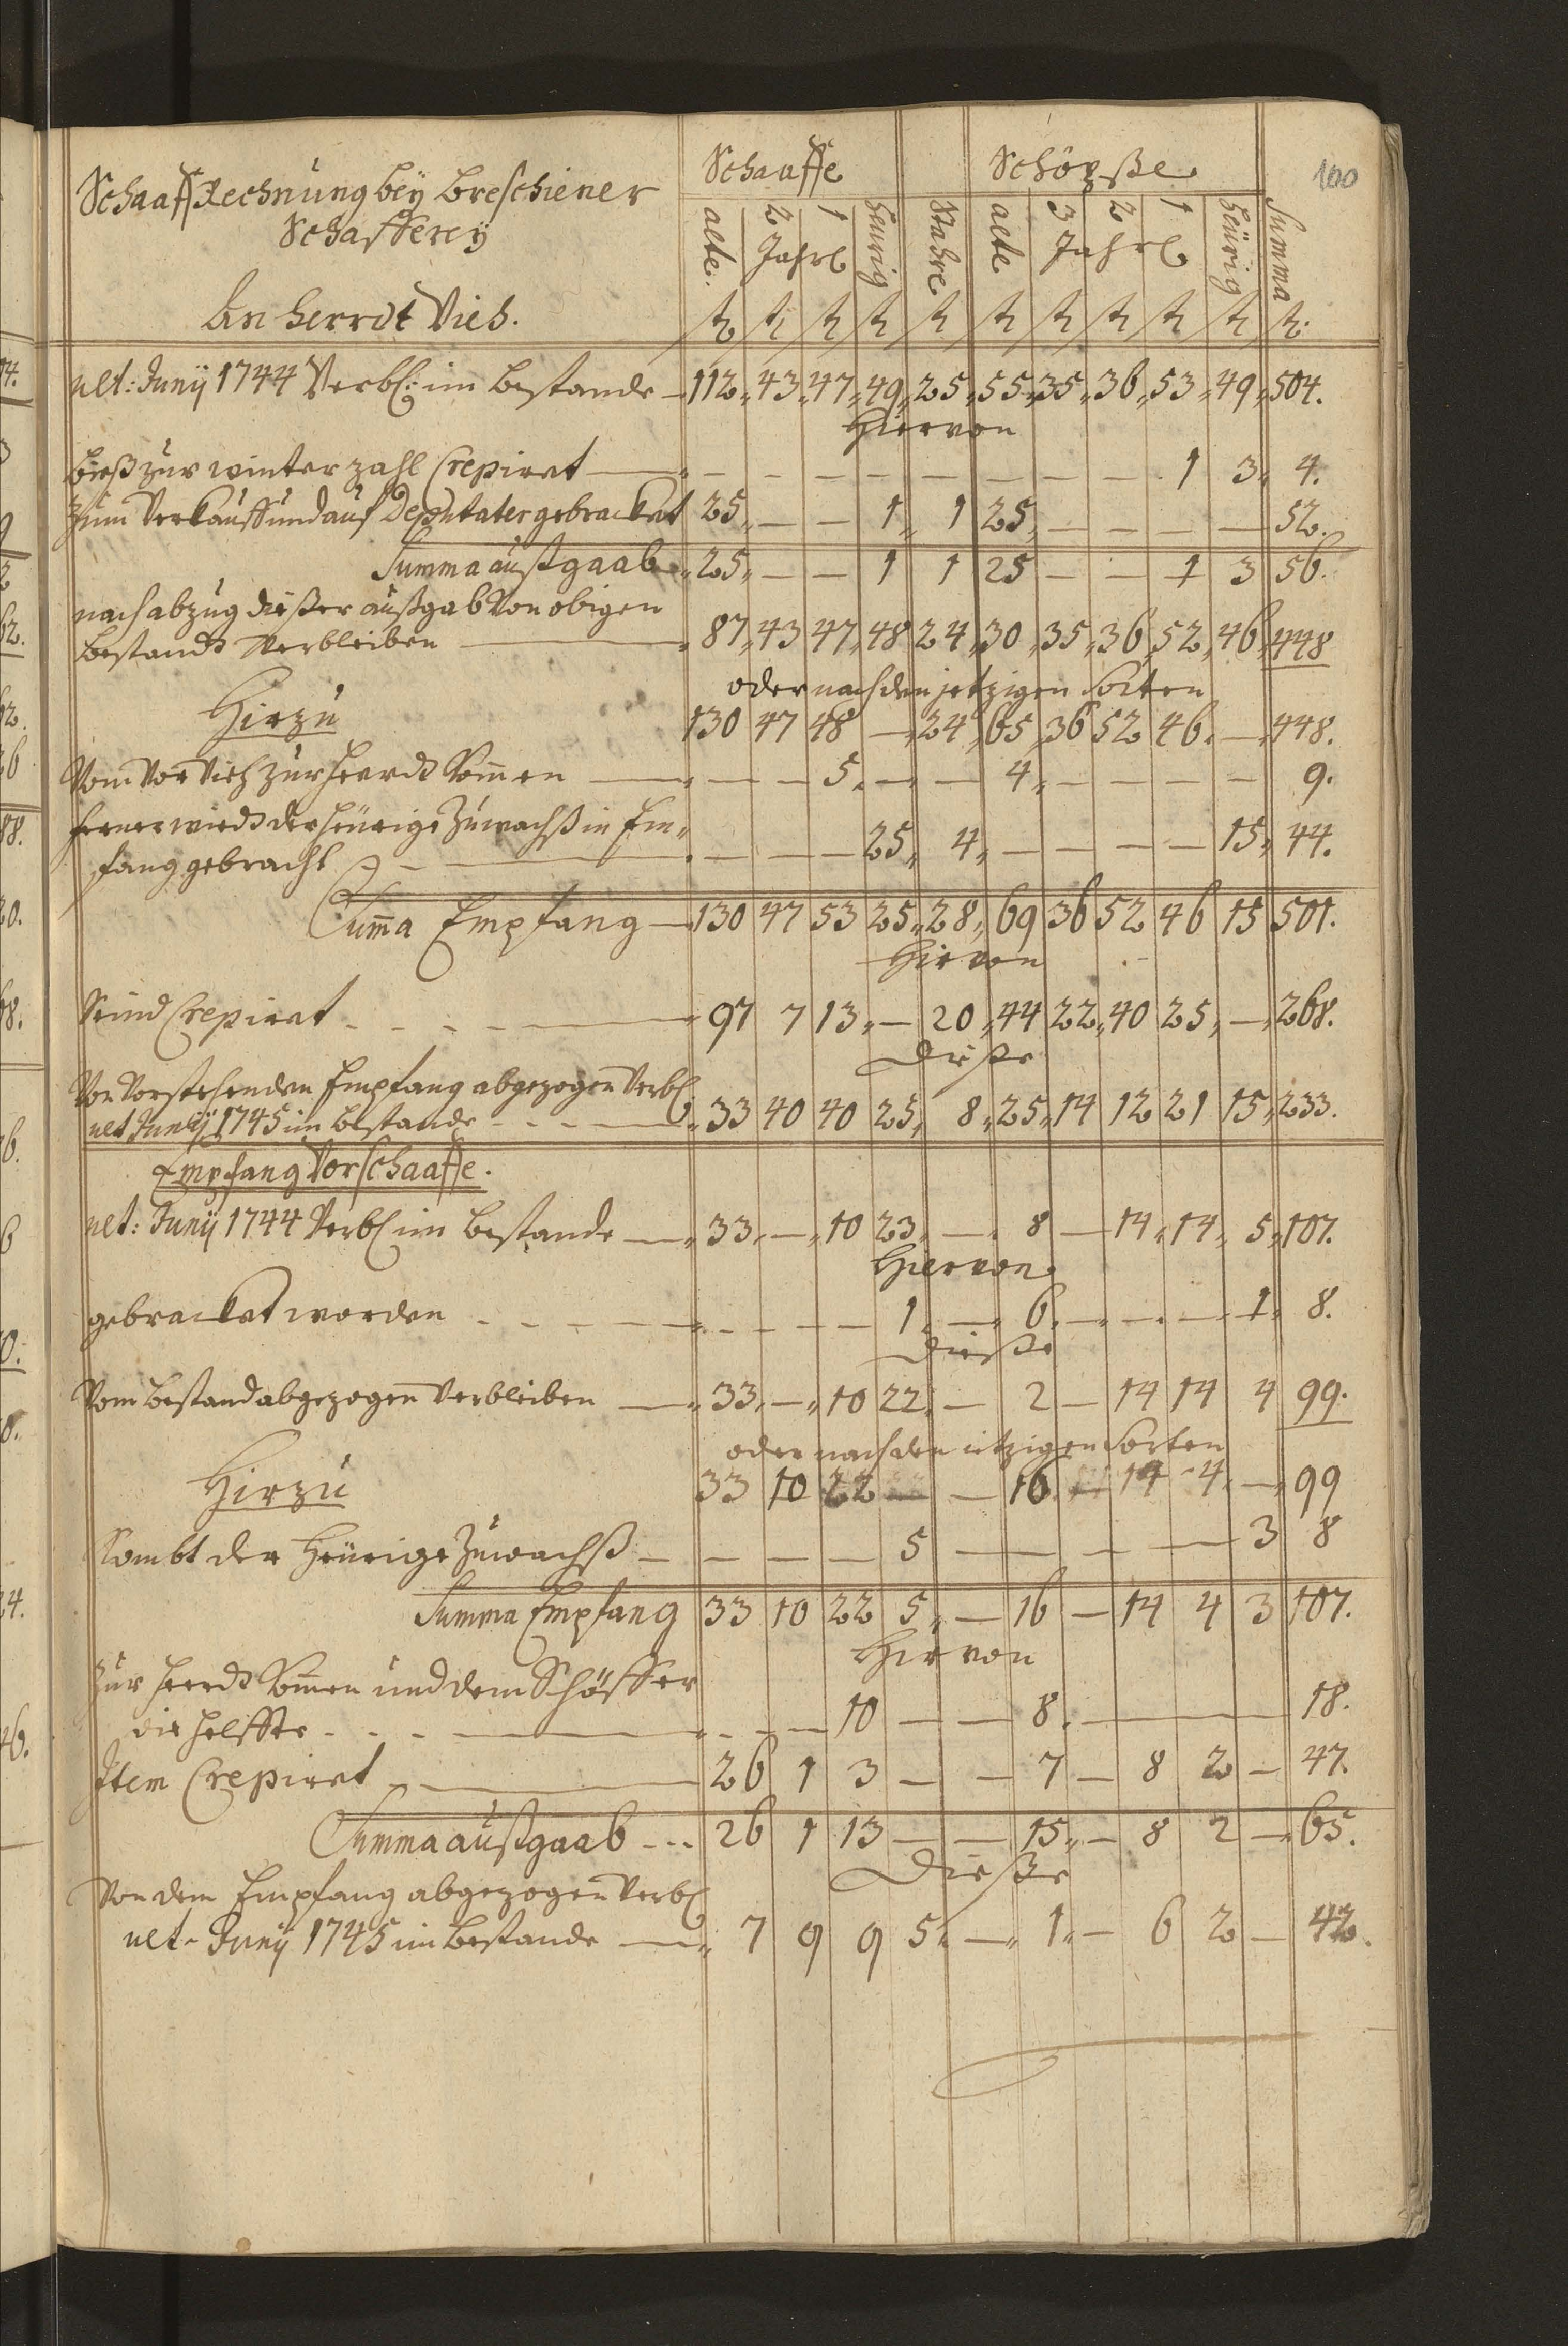 100
Schaaff Rechnung beÿ Breschiener
Schafferey
An Herrdt Vieh.
Schaaffe Schöpße
alte. 2 1 Jahrl Heurig Stahre alte 3 2 1 Jahrl heürig Summa
ult: Junÿ 1744 Verbl: im Bestande 112 43 47 49 25 55 35 36 53 49 504.
Hiervon
bieß zur winter zahl Crepiret — — — — — — — — 1 3 4.
Zum Verkauff und auf Deputater gebracket 25 — — 1 1 25 — — — — 52.
Summa außgaab 25 — — 1 1 25 — — 1 3 56.
nach abzug dießer außgab von obigen
Bestandt Verbleiben 87 43 47 48 24 30 35 36 52 46 448
oder nach den jetzigen Sorten
Hirzu 130 47 48 — 24 65 36 52 46 — 448.
Vom Vor Vieh zur Heerdt komen — — 5 — — 4 — — — — 9.
ferner wirdt der heürige Zuwachß in Em-
fang gebracht — — — 25 4 — — — — 15 44.
Suma Empfang 130 47 53 25 28 69 36 52 46 15 501.
Hirvon
Seind Crepiret 97 7 13 — 20 44 22 40 25 — 268.
Dieße
Von Vorstehenden Empfang abgezogen Verbl
ult Junÿ 1745 im Bestande 33 40 40 25 8 25 14 12 21 15 233.
Empfang Vorschaaffe.
ult: Junÿ 1744 Verbl im Bestande 33 — 10 23 — 8 — 14 14 5 107.
Hiervon
gebracket worden — — — 1 — 6 — — — 1 8.
Dieße
Vom Bestand abgezogen Verbleiben 33 — 10 22 — 2 — 14 14 4 99.
oder nach den itzigen Sorten
Hirzu 33 10 22 — — 16 — 14 4 — 99
Kombt der Heürige Zuwachß — — — 5 — — — — — 3 8
Summa Empfang 33 10 22 5 — 16 — 14 4 3 107.
Hirvon
Zur Heerdt komen und dem Schäffer
die helffte — — 10 — — 8 — — — — 18.
Item Crepiret 26 1 3 — — 7 — 8 2 — 47.
Summa außgaab 26 1 13 — — 15 — 8 2 — 65.
Dieße
Von dem Empfang abgezogen Verbl
ult. Junÿ 1745 im Bestande 7 9 9 5 — 1 — 6 2 — 42.